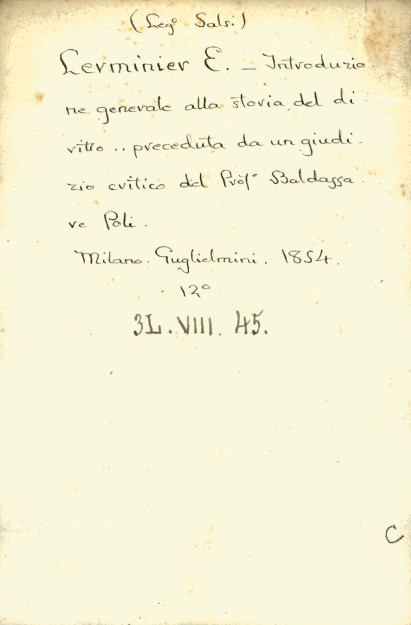 (Leg.º Salsi)
Lerminier E. — Introduzio
ne generale alla storia del di
ritto .. preceduta da un giudi.
zio critico del Profº Baldassa
re Poli.
Milano. Guglielmini. 1854.
12º
3L.VIII. 45.
C